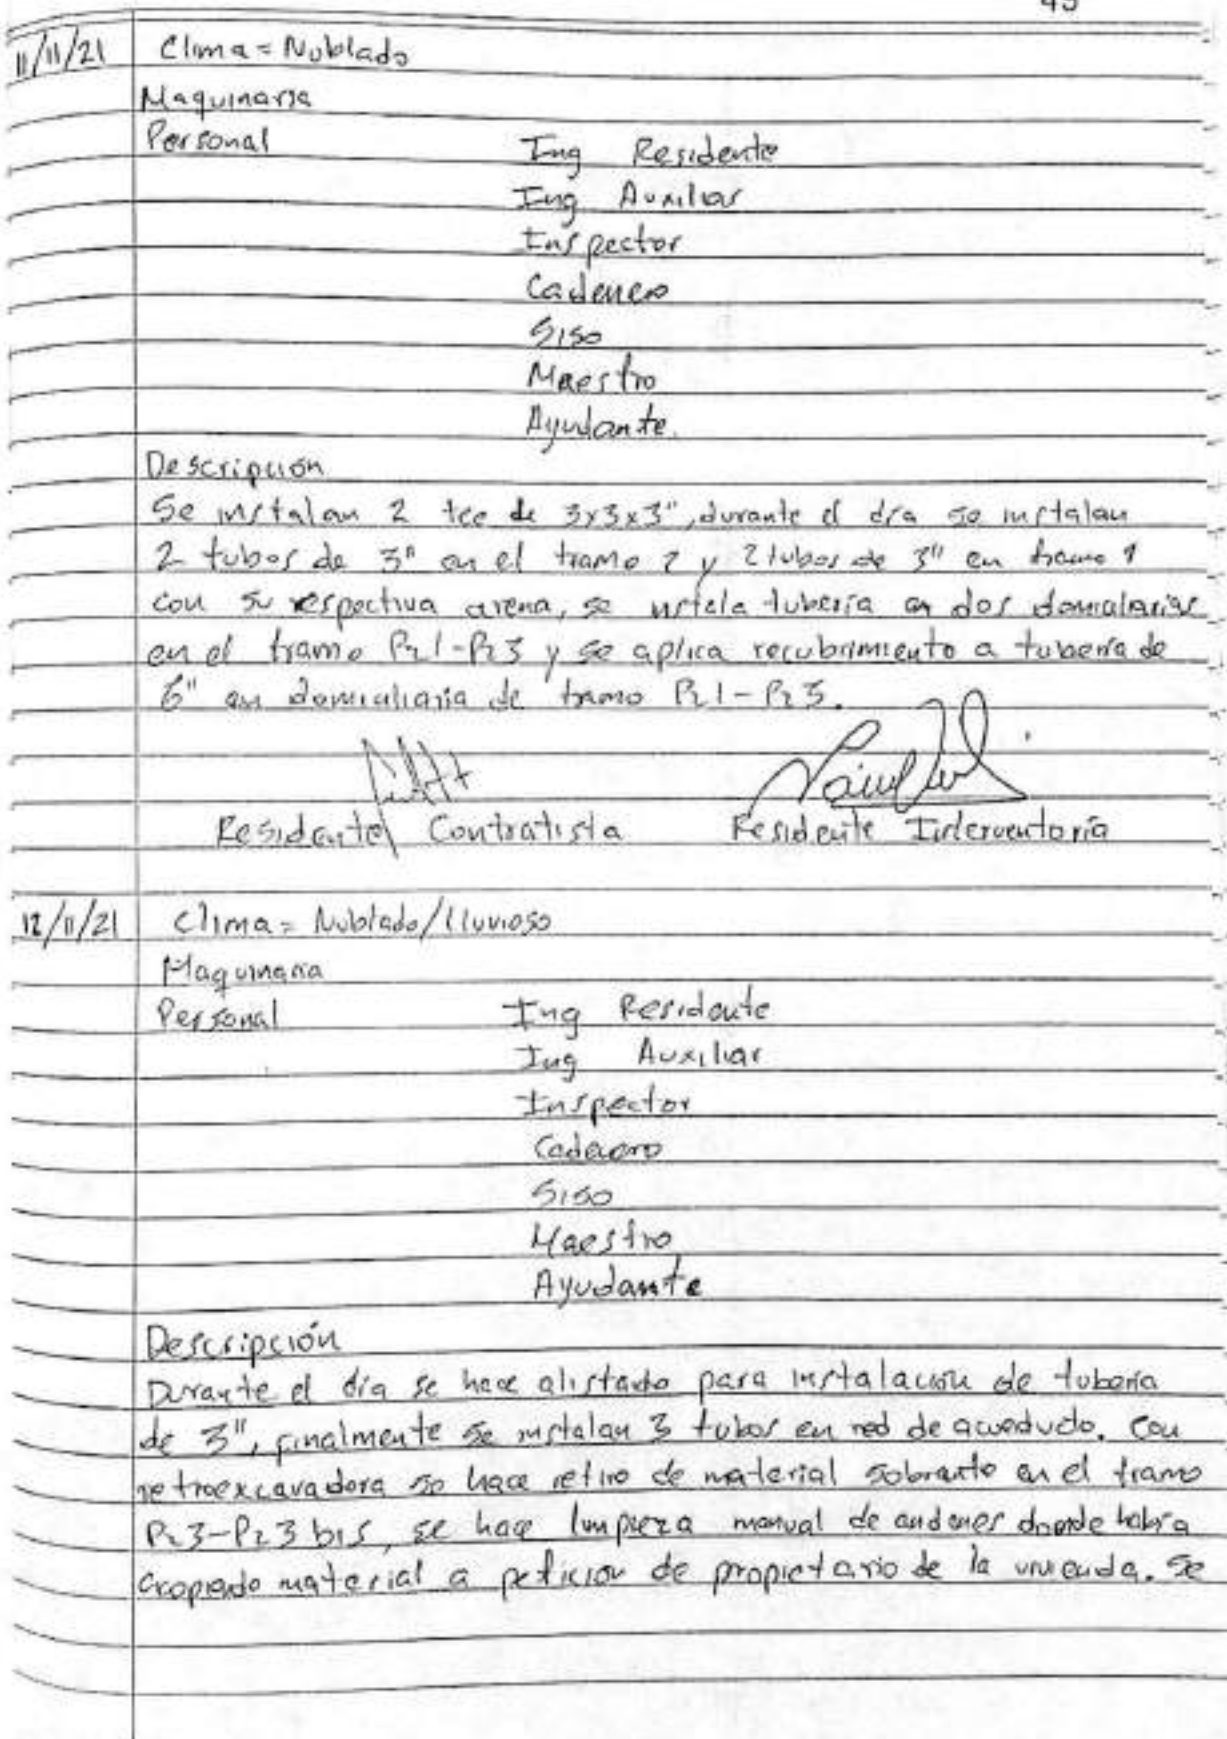 11/11/21 Clima = Nublado
Maquinaria
Personal
Ing Residente
Ing Auxiliar
Inspector
Cadenero
Siso
Maestro
Ayudante.
Descripción
Se instalan 2 tee de 3x3x3", durante el día se instalan
2 tubos de 3" en el tramo 2 y 2 tubos de 3" en tramo 1
con su respectiva arena, se instala tubería en dos domiciliarias
en el tramo Pz1-Pz3 y se aplica recubrimiento a tubería de
6" en domiciliaria de tramo Pz1-Pz3.
Residente Contratista Residente Interventoría
12/11/21 Clima = Nublado/lluvioso
Maquinaria
Personal
Ing Residente
Ing Auxiliar
Inspector
Cadenero
Siso
Maestro
Ayudante
Descripción
Durante el día se hace alistado para instalación de tubería
de 3", finalmente se instalan 3 tubos en red de acueducto. Con
retroexcavadora se hace retiro de material sobrante en el tramo
Pz3-Pz3 bis, se hace limpieza manual de andenes donde había
acopiado material a petición de propietario de la vivienda. Se